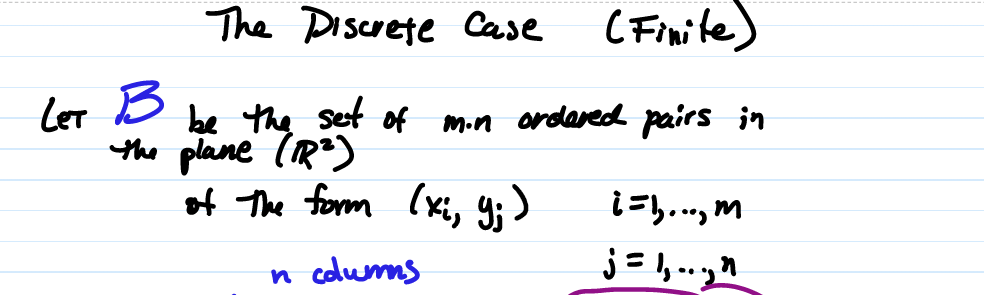 The Discrete Case (Finite)
Let B be the set of m·n ordered pairs in
the plane (ℝ²)
of the form (xᵢ, yⱼ) i=1,...,m
j = 1,...,n
n columns